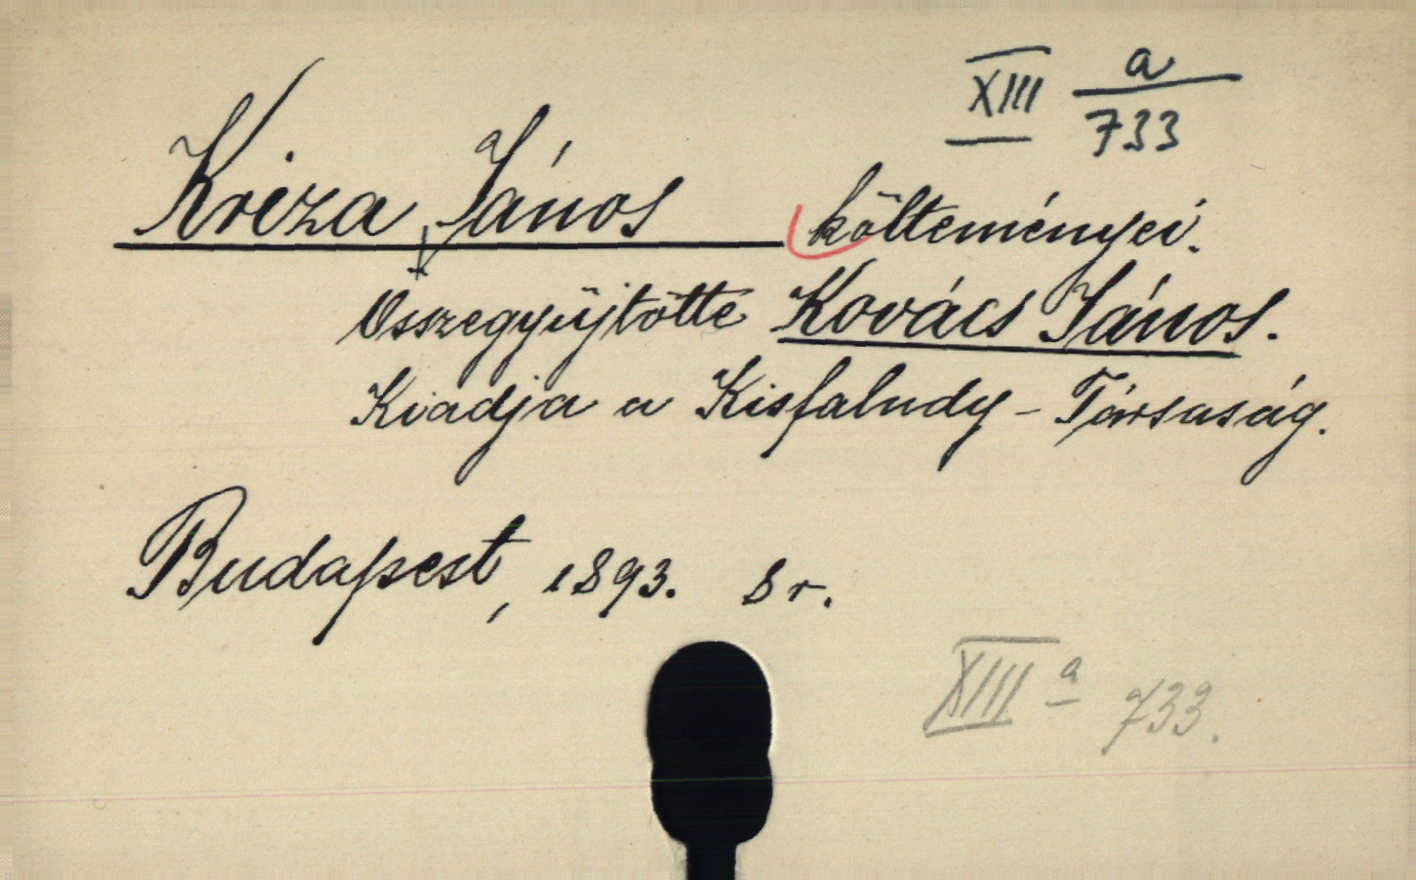 XIII a/733
Kriza János költeményei.
Összegyüjtötte Kovács János.
Kiadja a Kisfaludy-Társaság.
Budapest, 1893. 8 r.
XIII a 733.